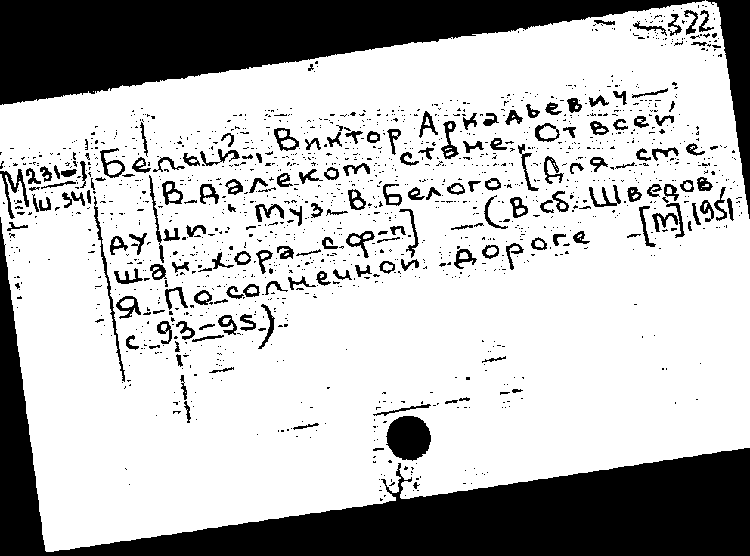 322
М231-1
Ш 341
Белый, Виктор Аркадьевич
В далекой стане „От всей
души" муз. В. Белого [Для сме-
шан. хора с ф-п] (В сб. Шведов,
Я. По солнечной дороге [М], 1951
с. 93-95)